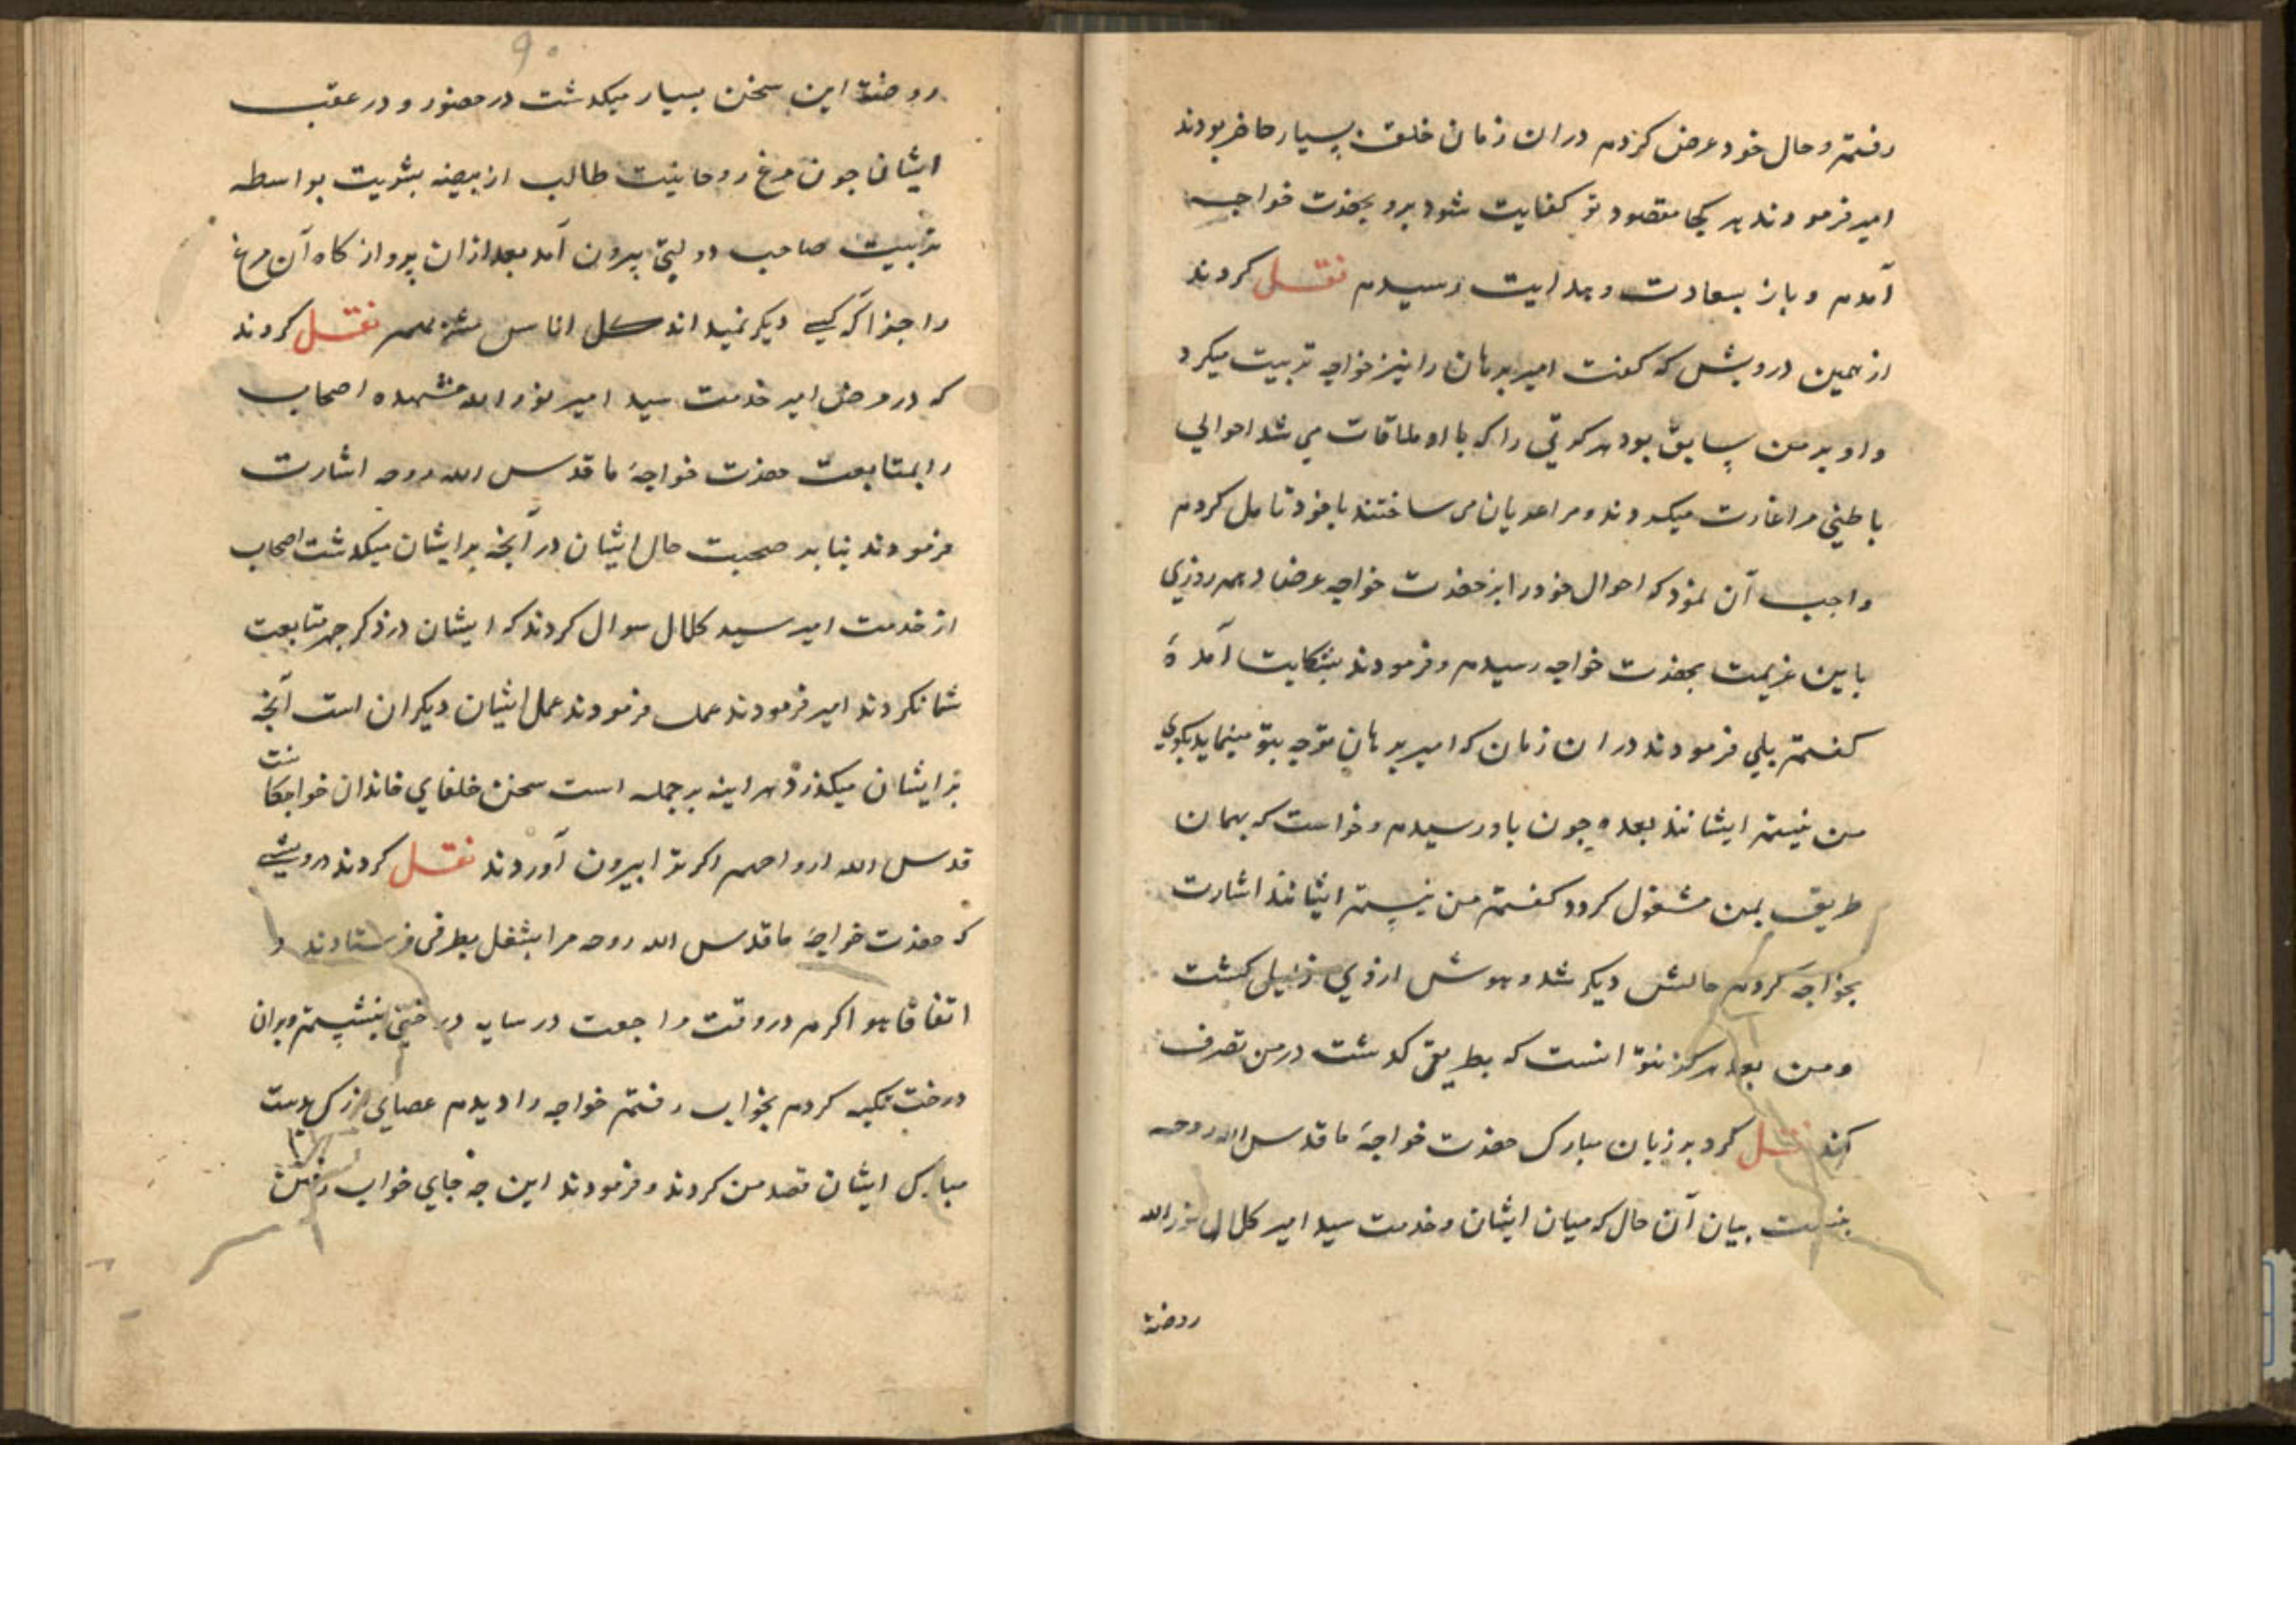 رفتم و حال خود عرض کردم دران زمان خلق بسیار حاضر بودند
امیر فرمودند بر کجا مقصود تو کفایت شود برو بحضرت خواجه
آمدم و باز بسعادت و هدایت رسیدم نقل کردند
از همین درویش که گفت امیر برهان را نیز خواجه تربیت میکرد
و او بر من سابق بود هر کرتی را که با او ملاقات می شد احوالی
باطنی مرا غارت میکردند و مرا عریان می ساختند با خود تامل کردم
واجب آن نمود که احوال خود را بر حضرت خواجه عرض دهم روزی
باین عزیمت بحضرت خواجه رسیدم و فرمودند بشکایت آمدهٔ
کفتم بلی فرمودند دران زمان که امیر برهان متوجه بتو مینماید بکوی
من نیستم ایشانند بعده چون باو رسیدم و خواست که بهمان
طریق بمن مشغول کردد کفتم من نیستم ایشانند اشارت
بخواجه کردم حالش دیکر شد و هوش ازوی زایل کشت
و من بعد هرکز نتوانست که بطریق کذشت در من تصرف
کند نقل کرد بر زبان مبارک حضرت خواجهٔ ما قدس الله روحه
بیان آن حال که میان ایشان و خدمت سید امیر کلال نور الله
روضتة
۹۰
روضتة این سخن بسیار میکذشت در حضور و در عقب
ایشان چون مرغ روحانیت طالب از بیضه بشریت بواسطه
تربیت صاحب دولتی بیرون آمد بعد ازان پرواز کاه آن مرغ
را جز اکر کسی دیکر نمیداند کل اناس مشربهم نقل کردند
که در مرض امیر خدمت سید امیر نور الله مشهده اصحاب
را بمتابعت حضرت خواجهٔ ما قدس الله روحه اشارت
فرمودند صحبت حال ایشان در آنچه بر ایشان میکذشت اصحاب
از خدمت امیر سید کلال سوال کردند که ایشان در ذکر جهر متابعت
شما نکردند امیر فرمودند عمل ایشان دیکران است آنچه
بر ایشان میکذرد هر اینه بر حکمت است سخن خلفای خاندان خواجکان
قدس الله ارواحهم اکر ترا بیرون آوردند نقل کردند درویشی
که حضرت خواجهٔ ما قدس الله روحه مرا بشغل بطرفی فرستادند و
اتفاقا هوا کرم در وقت مراجعت در سایه درختی بنشستم و بران
درخت تکیه کردم بخواب رفتم خواجه را دیدم عصای بزرک بدست
مبارک ایشان قصد من کردند و فرمودند این چه جای خواب رفتن